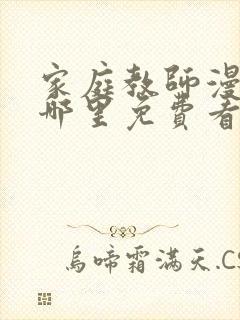 家庭教師漫
哪里免費看
烏啼霜滿天.CS